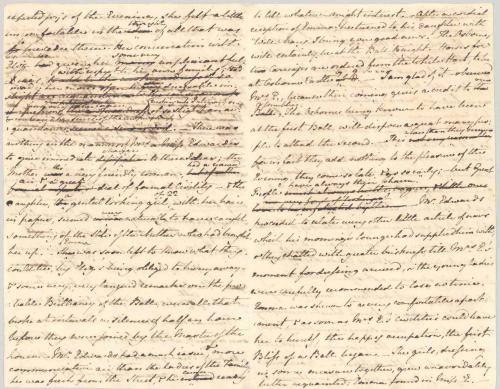 expected joys of the Evening, she felt a little
uncomfortable in the idea of all that was
to precede them. Her conversation with
Eliz. too giving her some very unpleasant feel
with respect to her own family, had
There was
nothing in the manners of Mrs. or Miss Edwardes
to give immediate to these Ideas; the
Mother tho' a very friendly woman, had a reserved
air, & a great deal of formal Civility — & the
daughter, a genteel looking girl of 22, with her hair
in papers, seemed very naturally to have caught
something of the Stile of the Mother who had brought
her up. — Emma was soon left to know what they
could be, by Eliz.'s being obliged to hurry away —
& some very, very languid remarks on the pro-
bable Brilliancy of the Ball, were all that
broke at intervals a silence of half an hour
before they were joined by the Master of the
house. — Mr. Edwards had a much easier, & more
communicative air than the Ladies of the Family;
he was fresh from the Street, & he came ready
to tell whatever might interest. — After a cordial
reception of Emma, he turned to his Daughter with
The Osbornes
will certainly be at the Ball tonight. — Horses for
two Carriages are ordered from the White Hart, to be
at Osborne Castle by 9. — I am glad of it — observed
Mrs. E., because their coming gives a credit to our
The Osbornes being known to have been
at the first Ball, will dispose a great many peo-
ple to attend the second. — It is more than they
for in fact they add nothing to the pleasure of the
Evening, they come so late, & go so early; — but Great
People have always their charm. —
Mr. Edwards
proceeded to relate every other little article of news
which his morning's lounge had supplied him with
& they chatted with greater briskness, till Mrs. E.'s
moment for dressing arrived, & the young Ladies
were carefully recommended to lose no time. —
Emma was shewn to a very comfortable apart-
ment, & as soon as Mrs. E.'s civilities could leave
her to herself, the happy occupation, the first
Bliss of a Ball began. — The girls, dressing
in some measure together, grew unavoidably
better acquainted; Emma found in Miss E. —